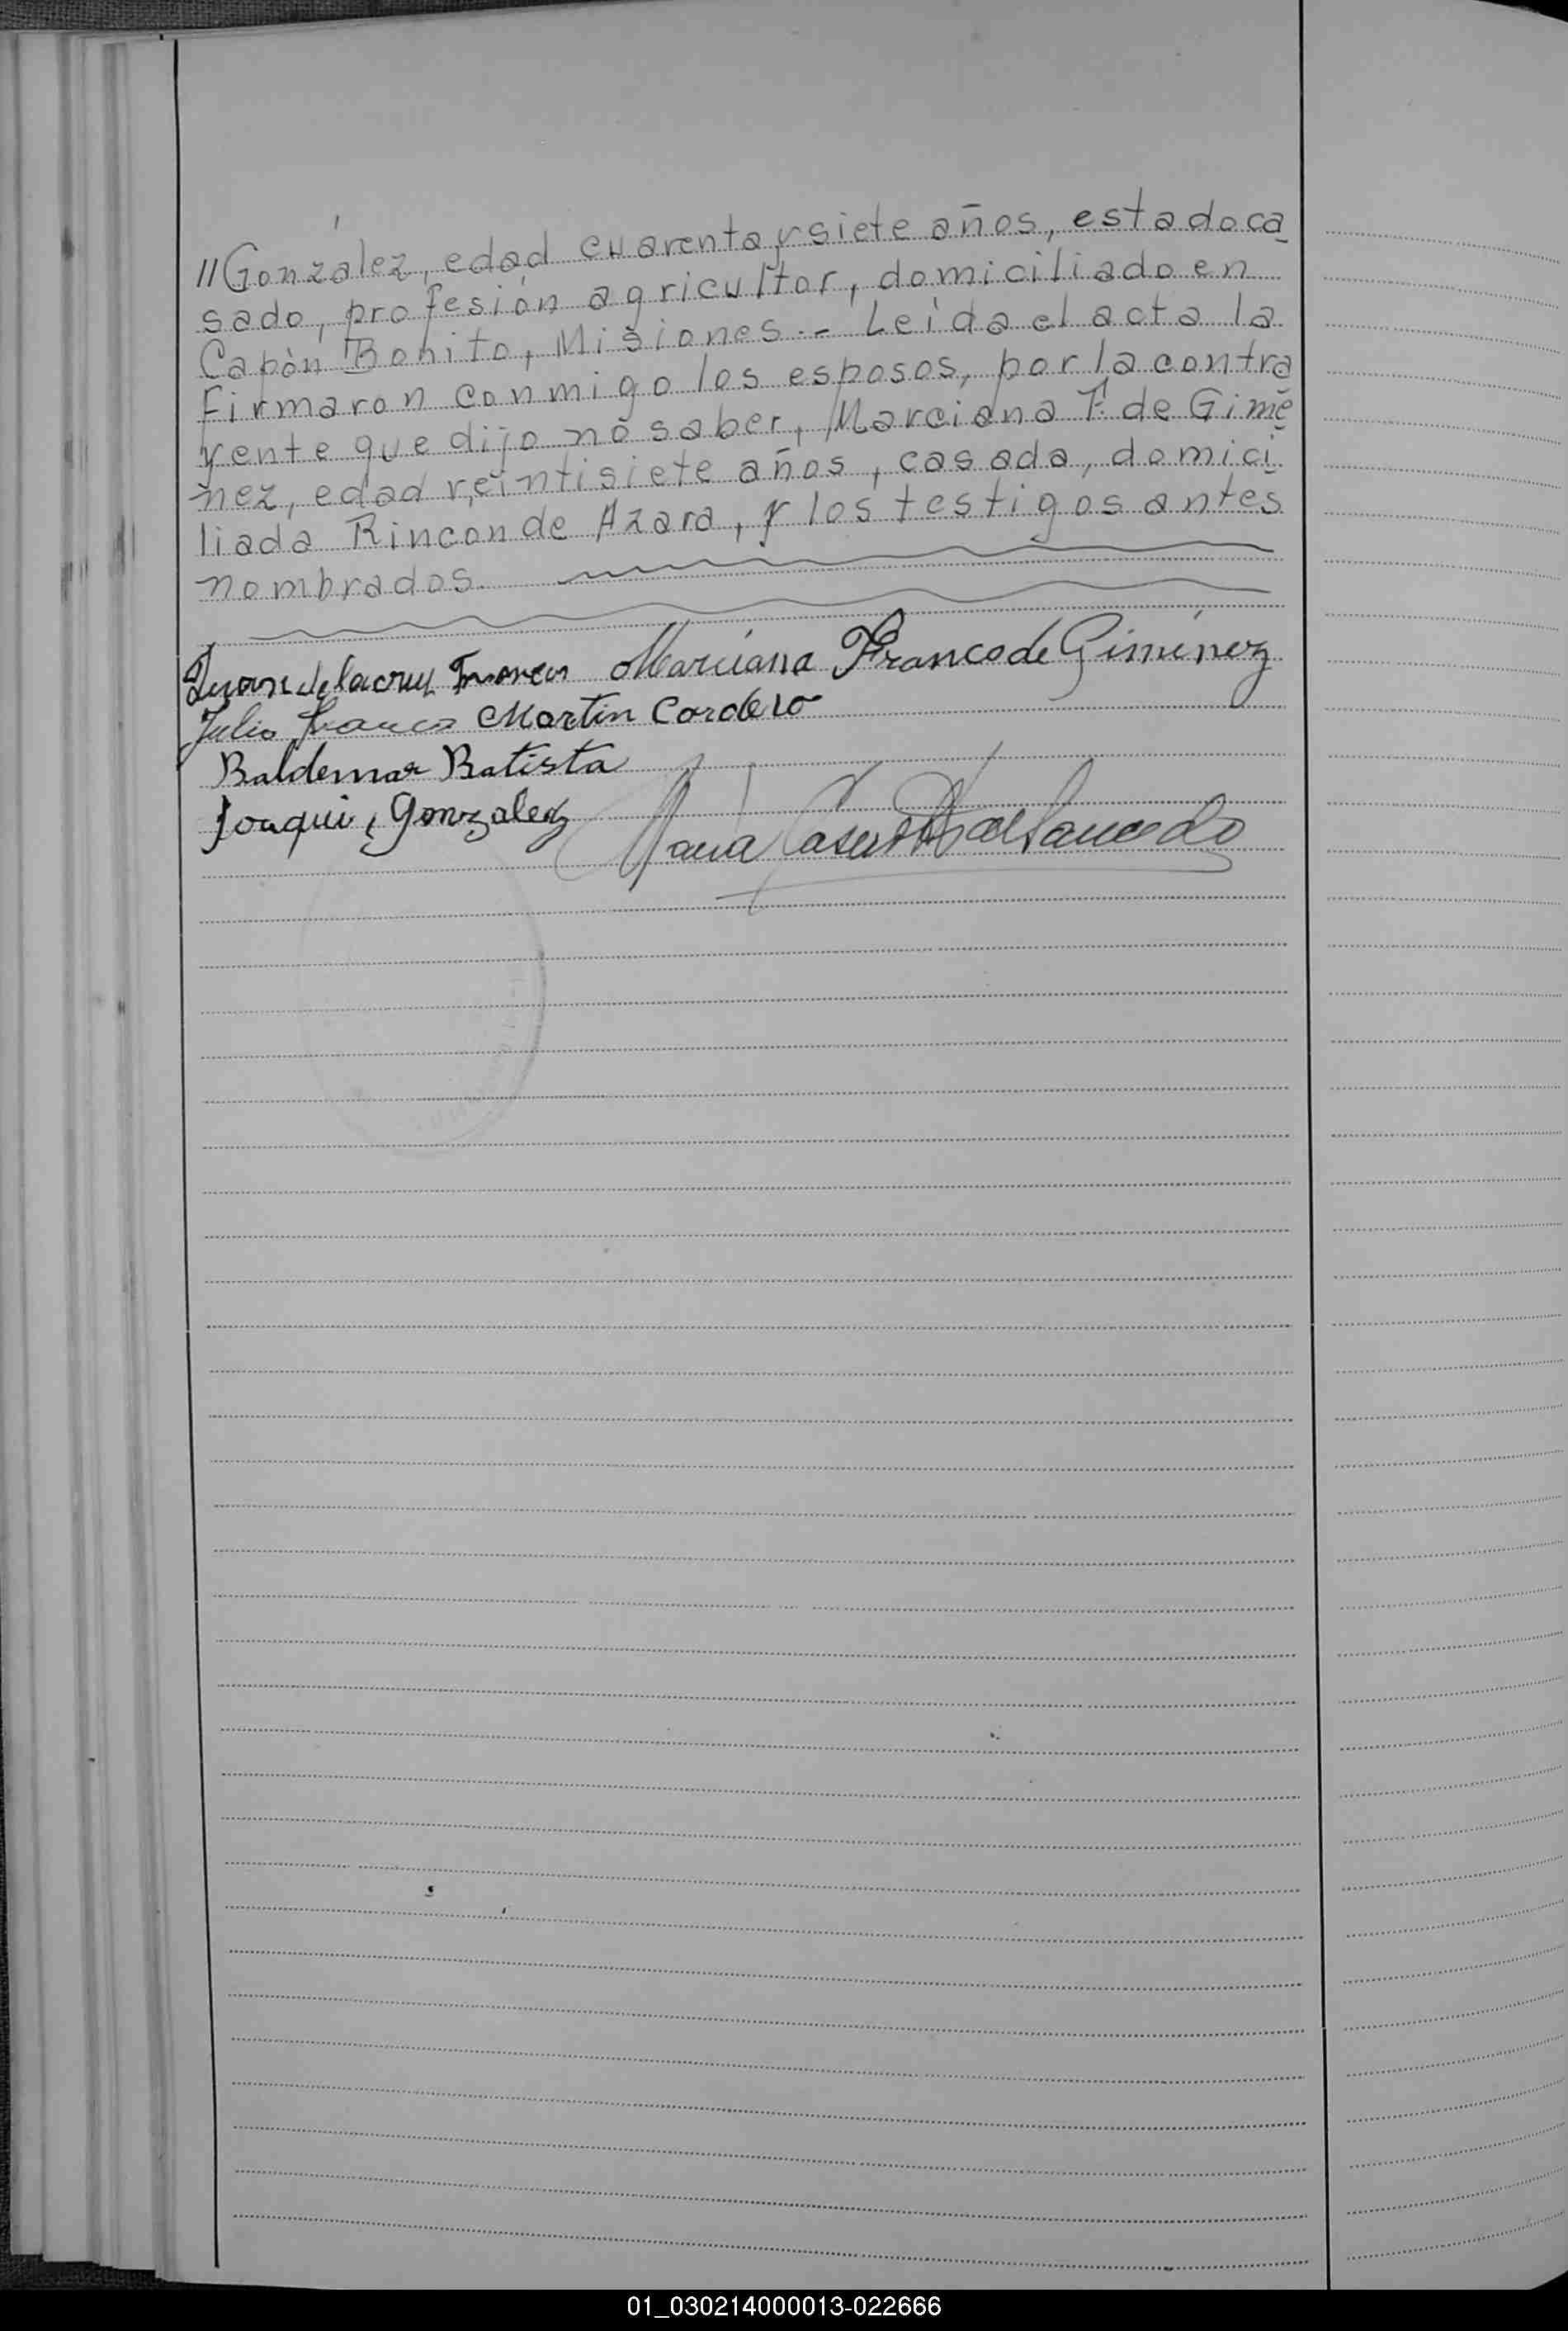 //González, edad cuarenta y siete años, estado ca
sado, profesión agricultor, domiciliado en
Capòn Bonito, Misiones.- Leída el acta la
firmaron conmigo los esposos, por la contra
yente que dijo no saber, Marciana F. de Gimé
nez, edad veintisiete años, casada, domici
liada Rincon de Azara, y los testigos antes
nombrados.
Juan de la cruz Marciana Franco de Giménez
Julio Franco Martin Cordero
Baldemar Batista
Joaqui, Gonzalez
01_030214000013-022666